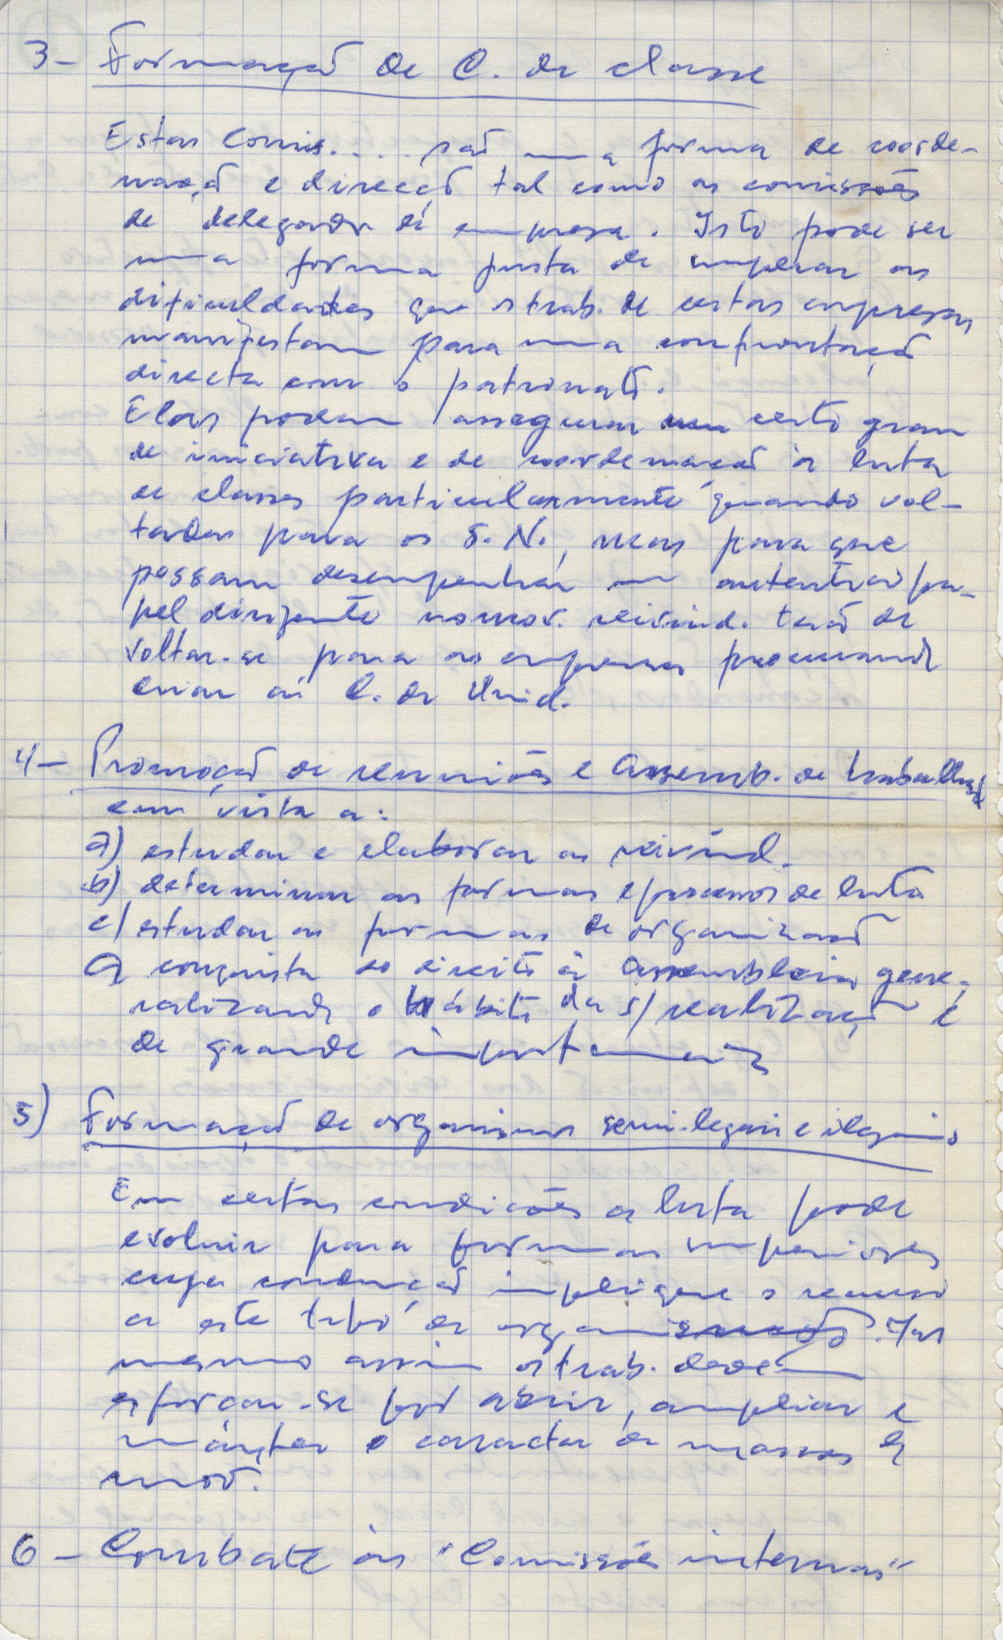 3- Formação de C. de classe
Estas Comis.... são uma forma de coorde-
nação e direcção tal como as comissões
de delegados de empresa. Isto pode ser
uma forma justa de superar as
dificuldades que os trab. de certas empresas
manifestam para uma confrontação
directa com o patronato.
Elas podem assegurar um certo grau
de iniciativa e de coordenação à luta
de classes particularmente quando vol-
tadas para os S.N., mas para que
possam desempenhar um autentico pa-
pel dirigente no mov. reivind. terão de
voltar-se para as empresas procurando
criar aí C. de Unid.
4- Promoção de reuniões e Assemb. de trabalhad
em vista a:
a) estudar e elaborar as reivind.
b) determinar as formas e/processos de luta
c) estudar as formas de organização
A conquista do direito à Assembleia, gene-
ralizando o hábito da s/ realização é
de grande importancia
5) Formação de organismos semi-legais e ilegais
Em certas condições a luta pode
evoluir para formas superiores
cuja condução implique o recurso
a este tipo de organização. Mas
mesmo assim os trab. devem
esforçar-se por abrir, ampliar e
manter o caracter de massas do
mov.
6- Combate às "Comissões internas"